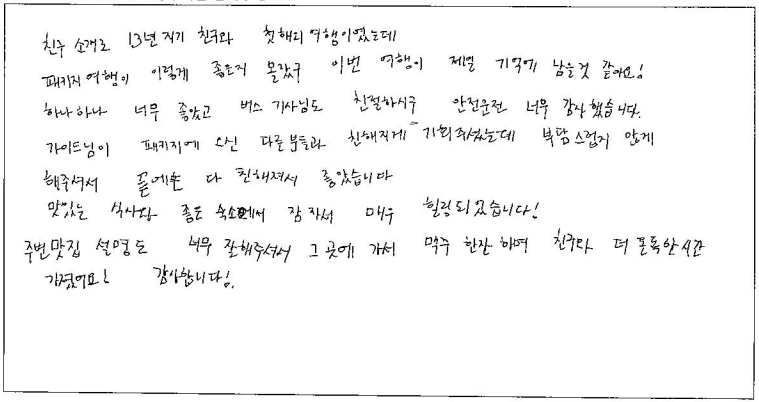 친구 소개로 13년지기 친구와 첫해외여행이였는데
패키지여행이 이렇게 좋은지 몰랐구 이번 여행이 제일 기억에 남을것 같아요!
하나하나 너무 좋았고 버스 기사님도 친절하시구 안전운전 너무 감사했습니다.
가이드님이 패키지에 오신 다른분들과 친해지게 기회주셨는데 부담스럽지 않게
해주셔서 끝에는 다 친해져서 좋았습니다
맛있는 식사와 좋은 숙소에서 잠자서 매우 힐링되었습니다!
주변맛집 설명도 너무 잘해주셔서 그 곳에 가서 맥주 한잔 하며 친구와 더 돈독한 시간
가졌어요! 감사합니다!.